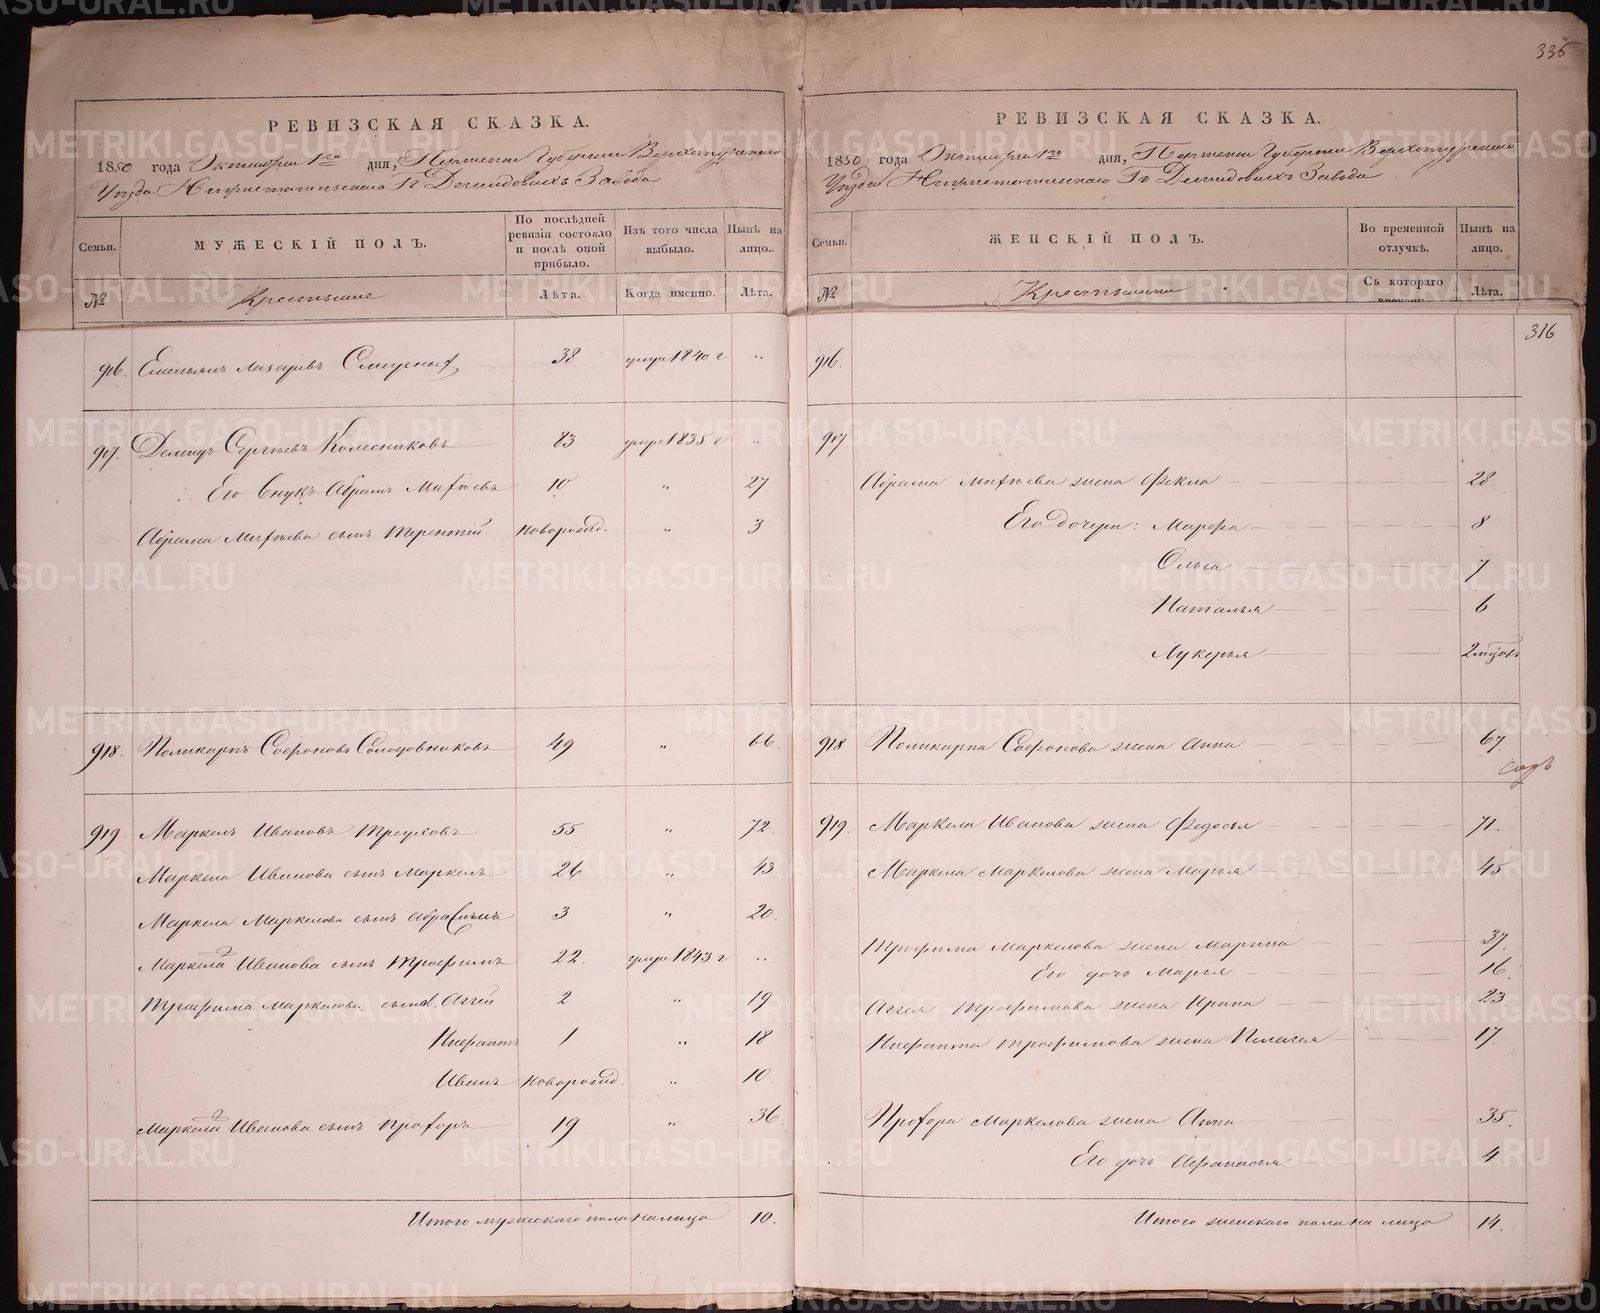 336
РЕВИЗСКАЯ СКАЗКА.
1850 года Октября 1го дня, Пермской Губернии Верхотурскаго
Уѣзда Нижнетагильскаго Гг Демидовыхъ Завода
Семьи.
МУЖЕСКІЙ ПОЛЪ.
По послѣдней ревизіи состояло и послѣ оной прибыло.
Изъ того числа выбыло.
Нынѣ на лицо.
№
Крестьяне
Лѣта.
Когда именно.
Лѣта.
916. Емельянъ Лазаревъ Смирныхъ 38 умре 1840 г "
917. Демидъ Сергѣевъ Колесниковъ 83 умре 1835 г "
Его внукъ Абрамъ Матѣевъ 10 " 27
Абрама Матѣева сынъ Терентій новорожд. " 3
918. Поликарпъ Софроновъ Солодовниковъ 49 " 66.
919. Маркелъ Ивановъ Треуховъ 55 " 72.
Маркела Иванова сынъ Маркелъ 26 " 43
Маркела Маркелова сынъ Абрам 3 " 20.
Маркела Иванова 2 сынъ Трофимъ 22. умре 1843 г "
Трофима Маркелова сынов. Аггей 2 " 19
Ксенофантъ 1 " 18
Иванъ новорожд. " 10
Маркела Иванова 3 сынъ Прохоръ 19 " 36
Итого мужескаго пола на лицо 10.
РЕВИЗСКАЯ СКАЗКА.
1850 года Октября 1го дня, Пермской Губерніи Верхотурскаго
Уѣзда Нижнетагильскаго Гг Демидовыхъ Завода
Семьи.
ЖЕНСКІЙ ПОЛЪ.
Во временной отлучкѣ.
Нынѣ на лицо.
№
Крестьянки
Съ котораго времени.
Лѣта.
316
916.
917
Абрама Матѣева жена Фекла 28
Его дочери: Марфа 8
Ольга 7
Наталья 6
Лукерья 2 мѣсяц
918 Поликарпа Софронова жена Анна 67.
919. Маркела Иванова жена Федосья 71.
Маркела Маркелова жена Марья 45
Трофима Маркелова жена Марина 37.
Его дочь Марья 16.
Аггея Трофимова жена Ирина 23
Трофимова жена Пелагея 17
Прохора Маркелова жена Анна 35.
Его дочь Афанасья 4
Итого женскаго пола на лицо 14.
METRIKI.GASO-URAL.RU